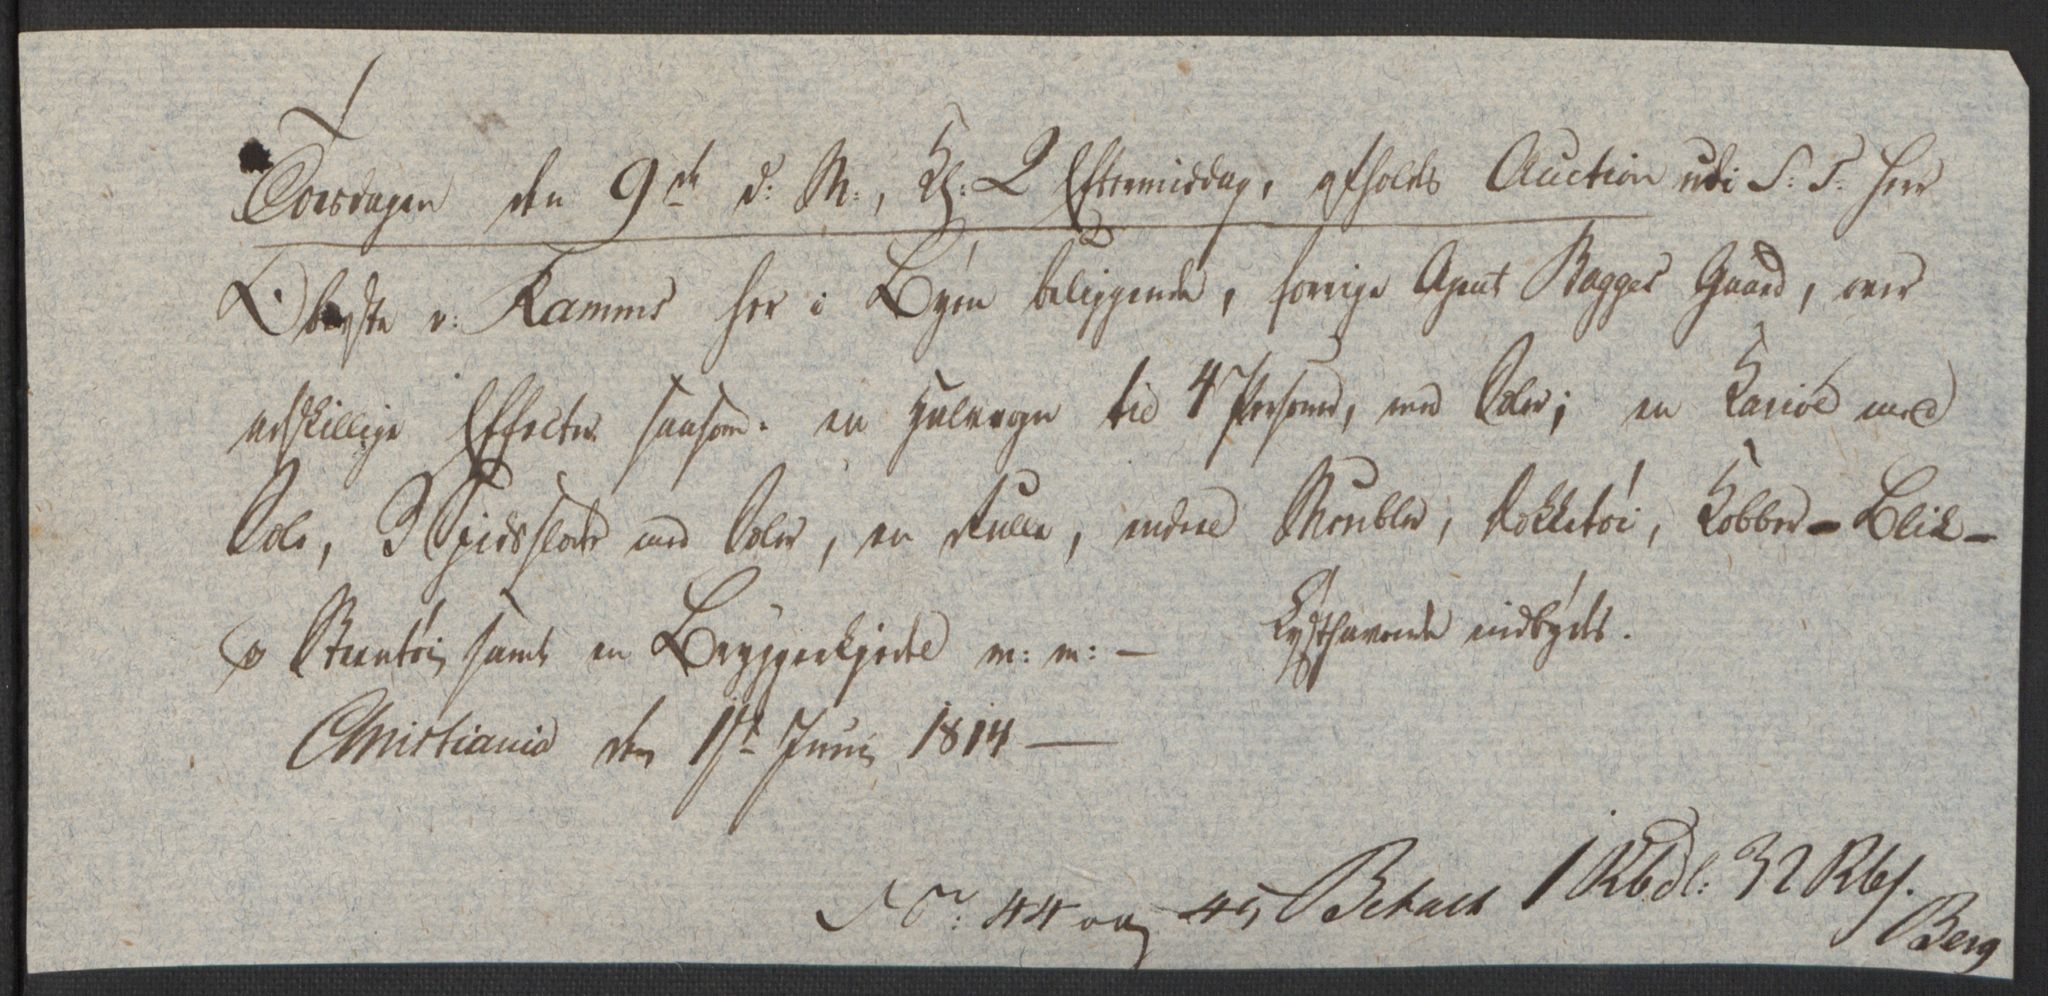 Torsdagen den 9de d: M:, Kl: 2 Eftermiddag, afholdes Auction udi S: T: Herr
Obriste v: Kamms her i Byen beliggende, forrige Agent Bagges Gaard, over
adskillige Effecter saasom: en Hulvogn til 4 Personer, med Seler; en Kariol med
Sele, 3 Spidsslæder med Seler, en Rulle, endeel Meubler, Kokketøi, Kobber- Blik-
og Steentøi samt en Bryggerkjedel m: m: — Lysthavende indbydes.
Christiania den 1ste Junii 1814 —
No: 44 og 45 Betalt 1 Rbdl: 32 Rbs.
Berg